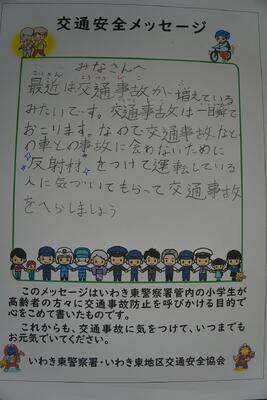 交通安全メッセージ
みなさんへ
さいきん こうつうじこ ふ
最近は交通事故が増えている
みたいです。交通事故は一瞬で
おこります。なので交通事故など
の車との事故に会わないために
"反射材"をつけて運転している
人に気づいてもらって交通事故
をへらしましょう
このメッセージはいわき東警察署管内の小学生が
高齢者の方々に交通事故防止を呼びかける目的で
心をこめて書いたものです。
これからも、交通事故に気をつけて、いつまでも
お元気でいてください。
いわき東警察署・いわき東地区交通安全協会